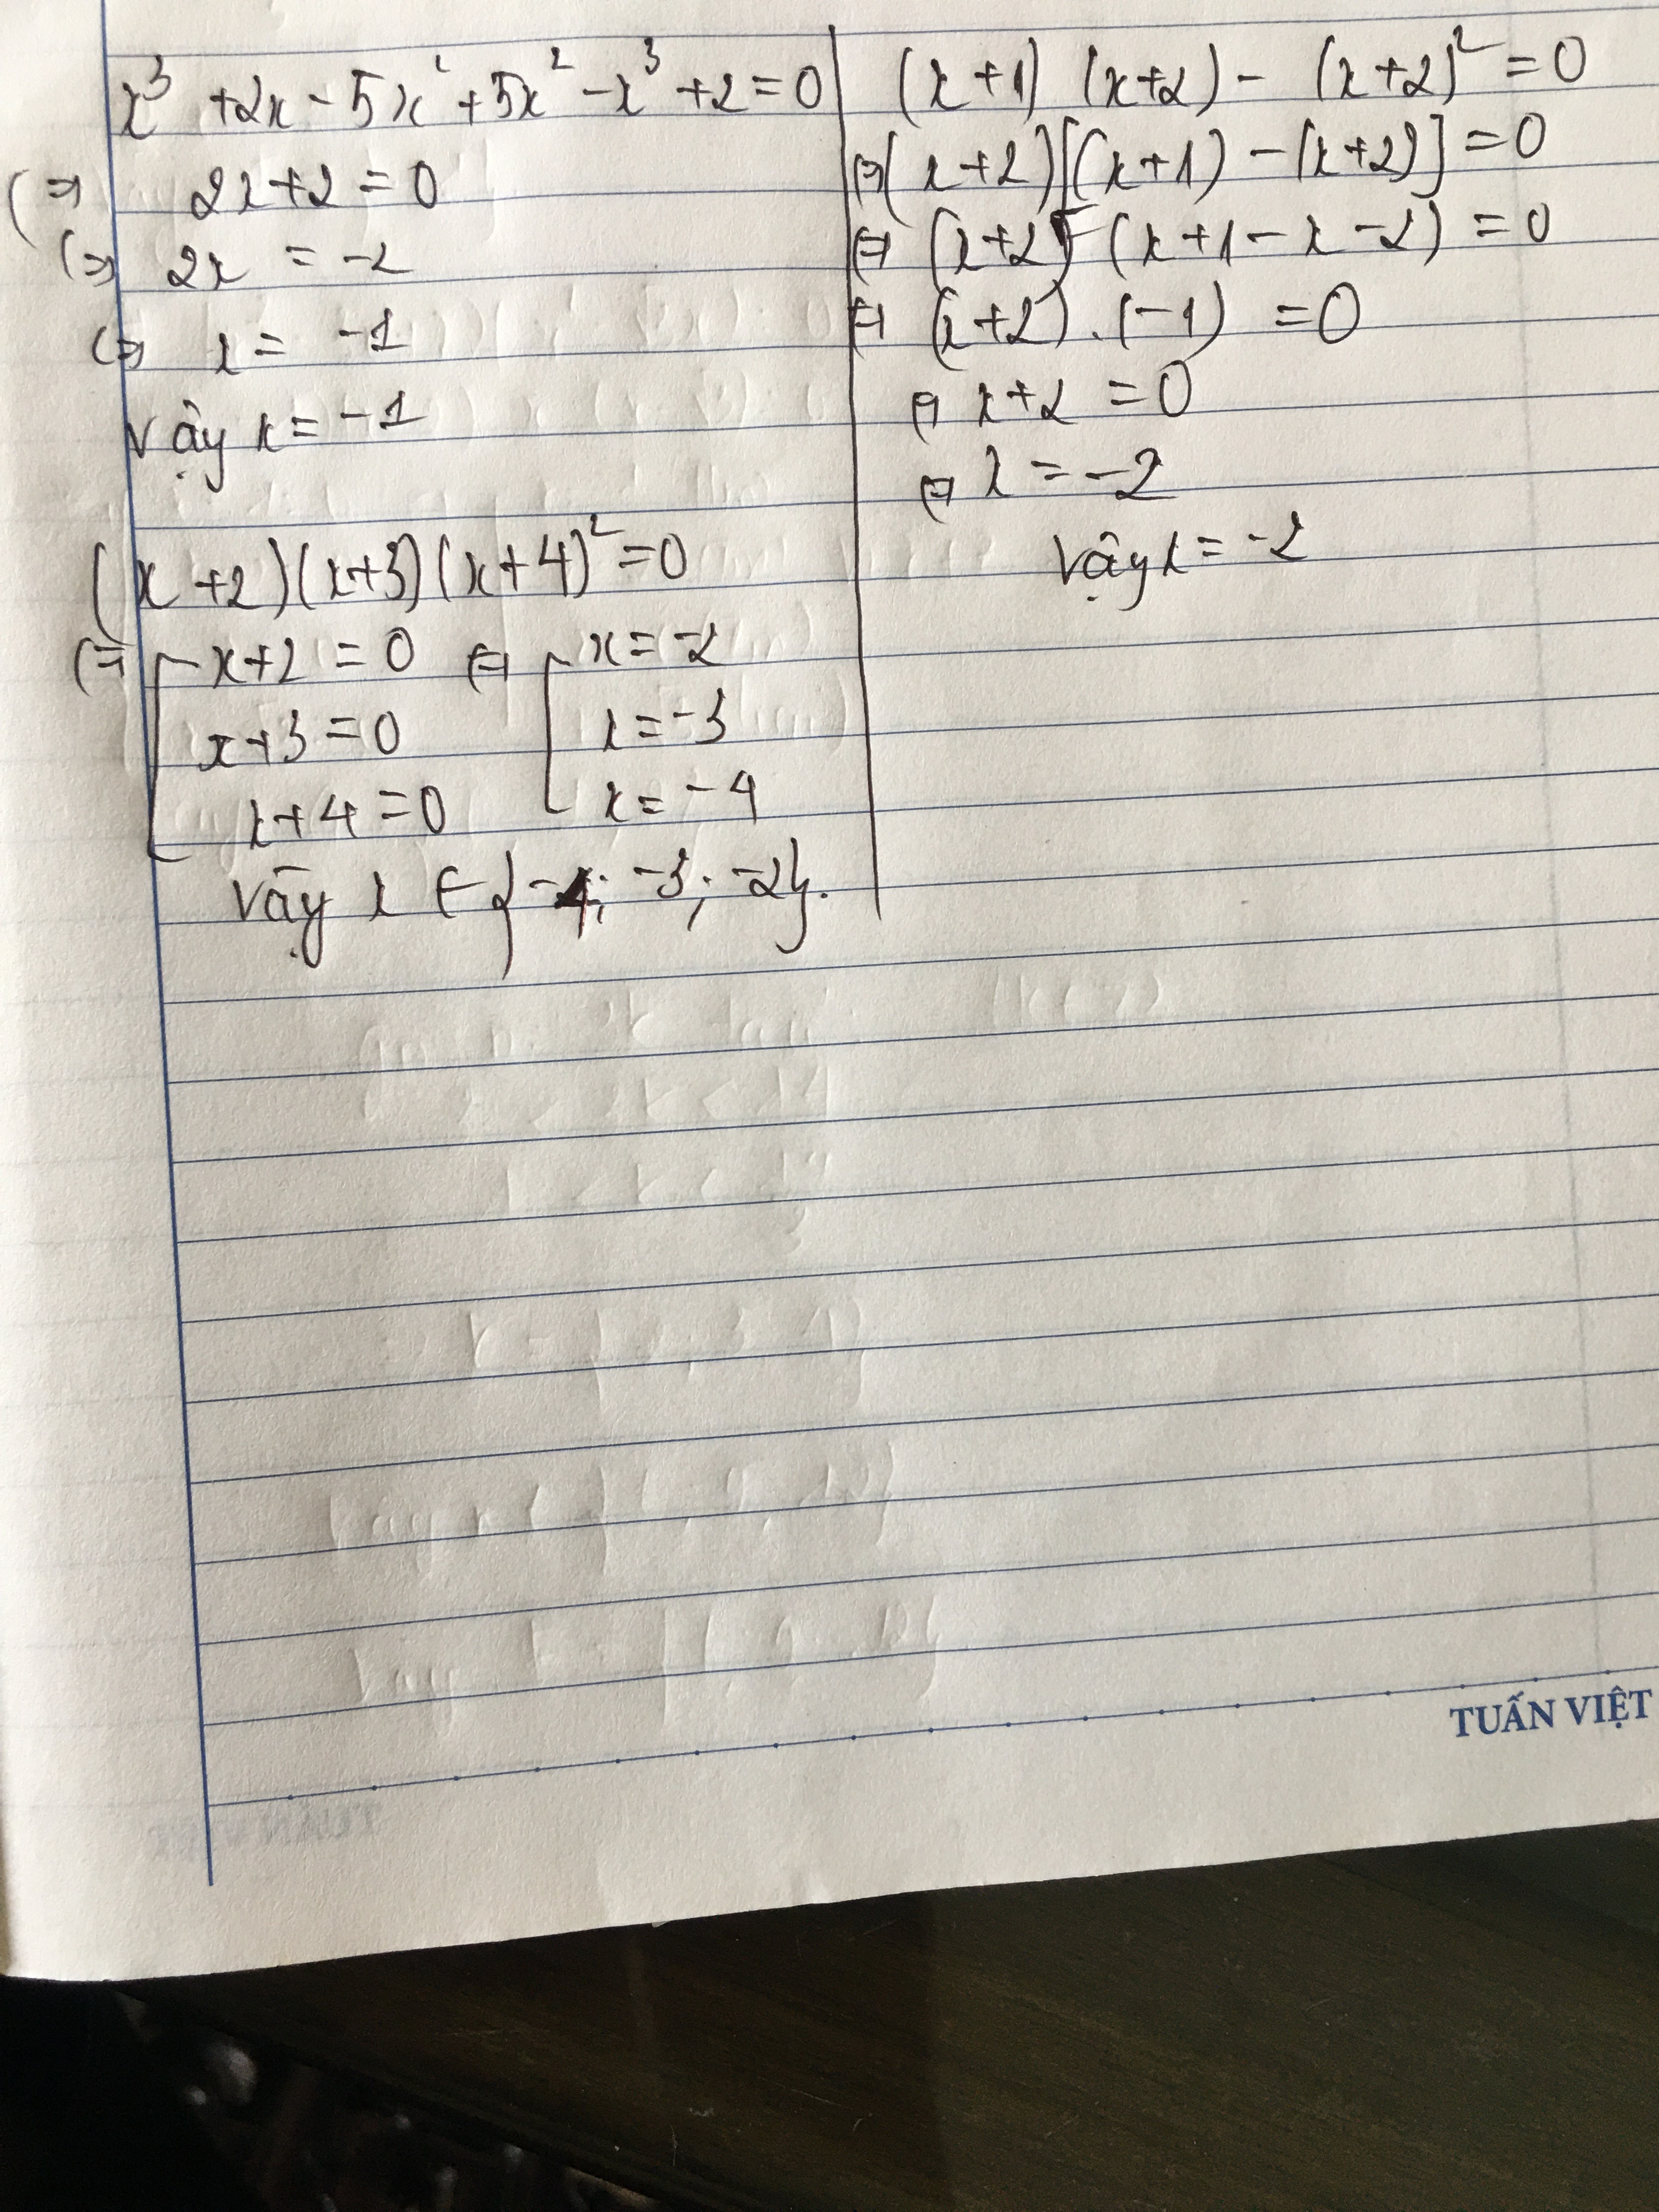 x³ + 2x - 5x² + 5x² - x³ + 2 = 0
⇔ 2x + 2 = 0
⇔ 2x = -2
⇔ x = -1
Vậy x = -1
(x + 2)(x + 3)(x + 4)² = 0
⇔ [ x + 2 = 0 ⇔ [ x = -2
x + 3 = 0 x = -3
x + 4 = 0 x = -4
Vậy x ∈ {-4; -3; -2}.
(x + 1) (x + 2) - (x + 2)² = 0
⇔ (x + 2)[(x + 1) - (x + 2)] = 0
⇔ (x + 2) (x + 1 - x - 2) = 0
⇔ (x + 2) . (-1) = 0
⇔ x + 2 = 0
⇔ x = -2
Vậy x = -2
TUẤN VIỆT